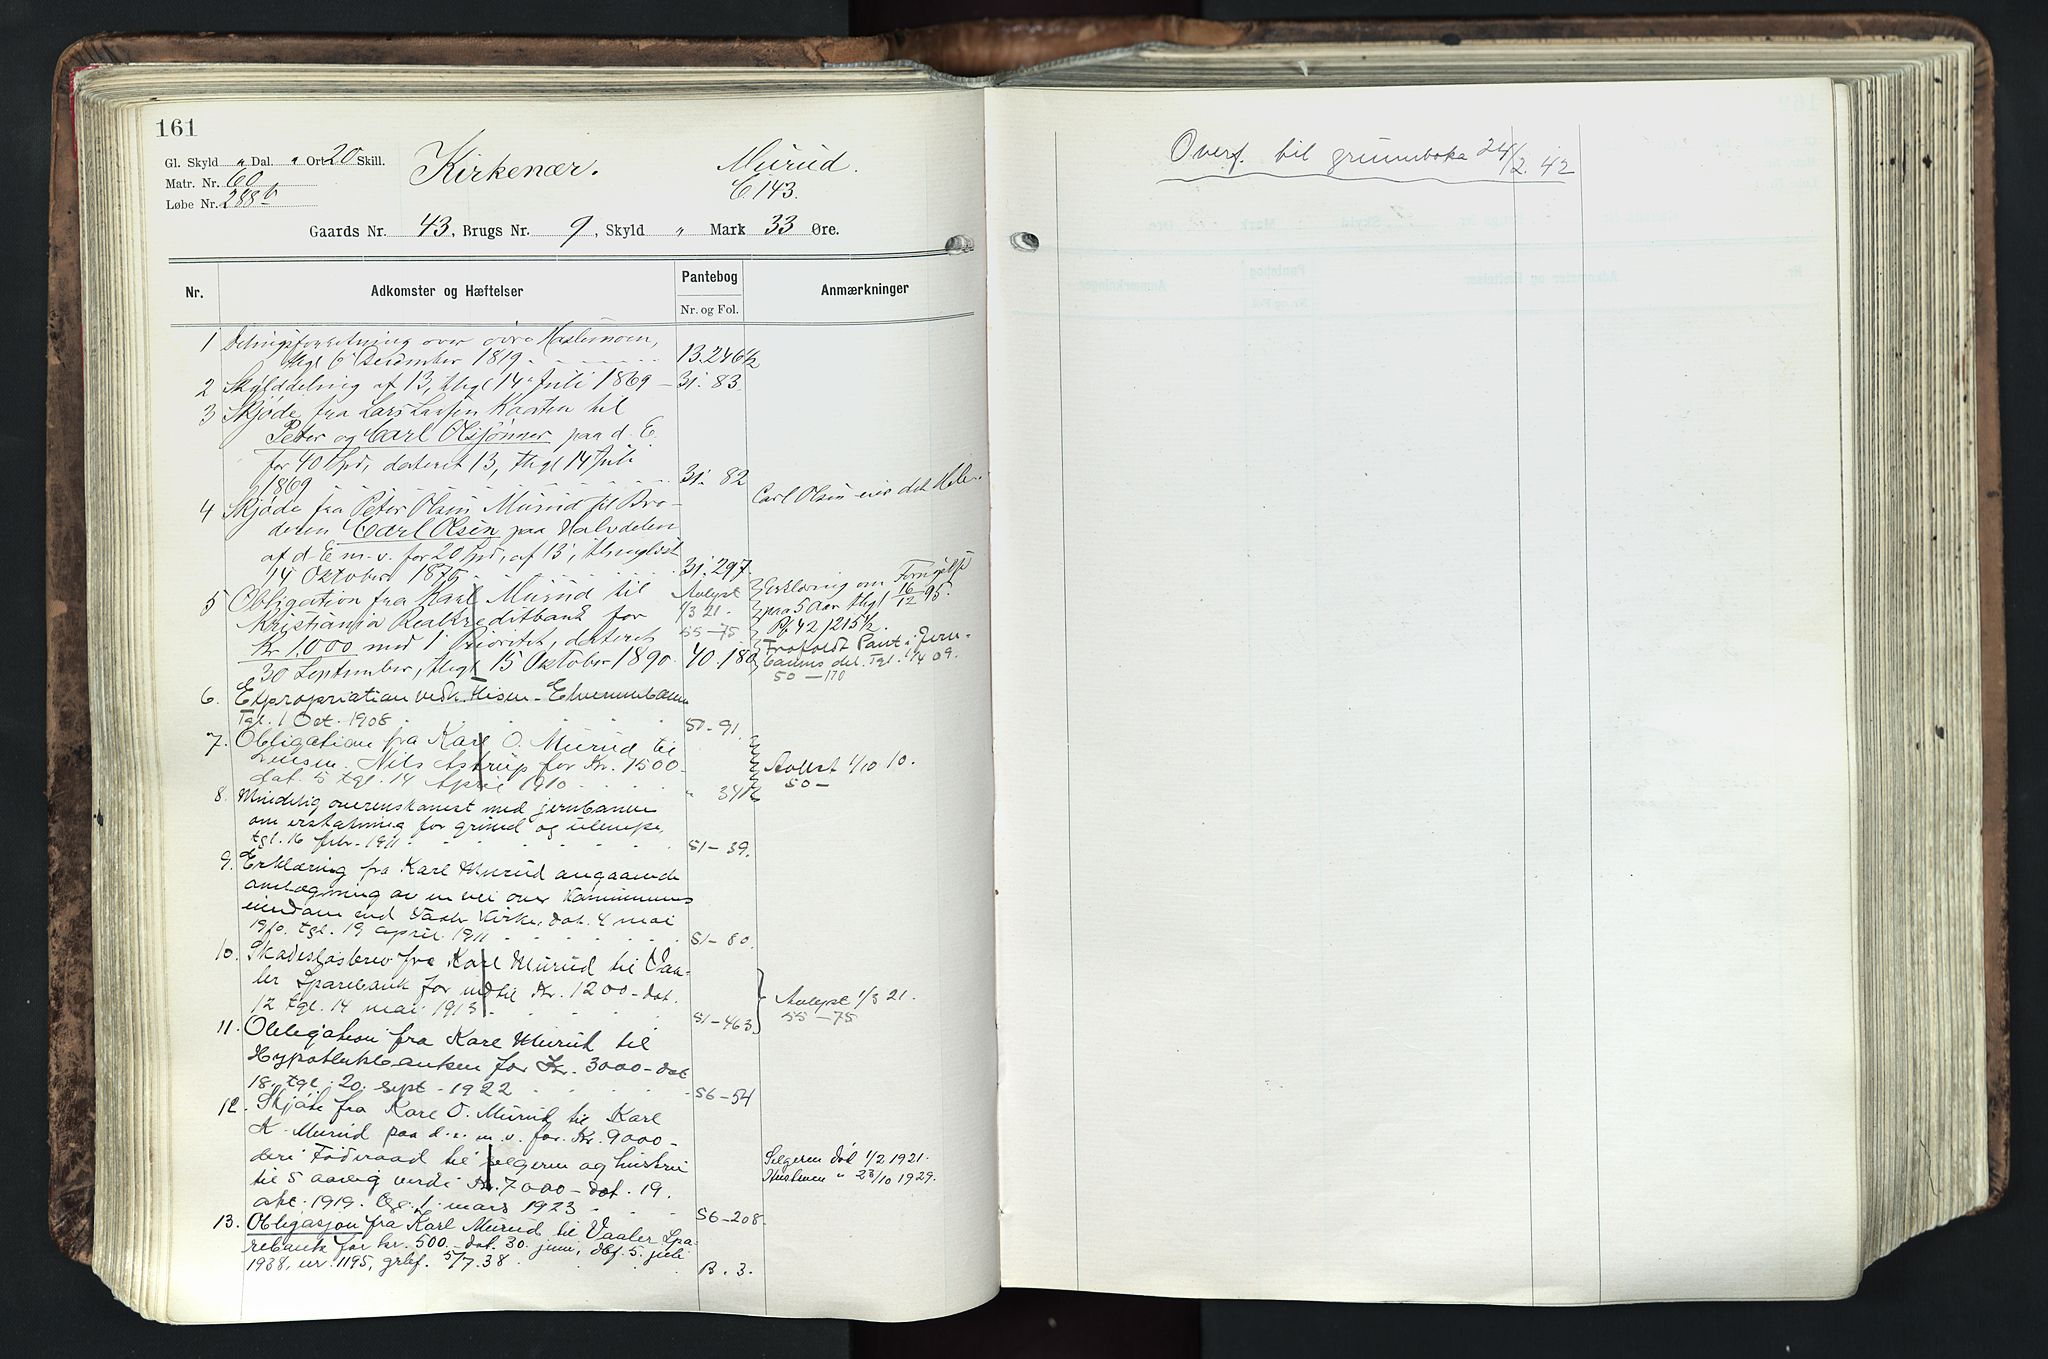 161
Gl. Skyld " Dal. " Ort 20 Skill.
Matr. Nr. 60
Løbe Nr. 288b
Kirkenær.
Murud.
C. 143.
Gaards Nr. 43, Brugs Nr. 9, Skyld " Mark 33 Øre.
Nr.
Adkomster og Hæftelser
Pantebog
Nr. og Fol.
Anmærkninger
1 Delingsforretning over øvre Haslemoen,
thgl 6 December 1819. 13.246½
2 Skylddeling af 13, thgl 14 Juli 1869 31. 83
3 Skjøde fra Lars Larsen Kaaten til
Peter og Carl Olsønner paa d. E.
for 40 Spd, dateret 13, thgl 14 Juli
1869 31. 82
4 Skjøde fra Peter Olsen Murud til Bro-
deren Carl Olsen paa Halvdelen
af d. E m. v. for 20 Spd, af 13, thinglist
14 Oktober 1875. 31. 297.
Carl Olsen eier det Hele.
5 Obligation fra Karl Murud til
Kristiania Realkreditbank for
Kr 1,000 med 1 Prioritet, dateret
30 September, thgl 15 Oktober 1890. 40. 180
Avlyst
1/3 21.
55-75
Erklæring om Fornyelse
paa 5 Aar thgl 16/12 95.
Pb. 42/215½.
Frafaldt Pant i Jern-
banens del. Tgl. 1/4 09.
50-170
6. Expropriation vedk. Kisen-Elverumbanen
Tgl. 1 Oct. 1908 50-91.
7. Obligation fra Karl O. Murud til
Nils Astrup for Kr. 1500-
dat. 5 tgl. 14 April 1910 " 341½
Avlyst 1/10 10.
50-
8. Mindelig overenskomst med jernbanen
om erstatning for grund og ulempe,
tgl. 16 febr. 1911 51-39.
9. Erklæring fra Karl Murud angaaende
omlægning av en vei over Kommunens
eiendom ved Vaaler Kirke, dat. 4 mai
1910. tgl. 19 april 1911 51-80.
10. Skadesløsbrev fra Karl Murud til Vaa-
ler Sparebank for indtil Kr. 1200- dat.
12 tgl. 14 mai 1913. 51-463.
Avlyst 1/3 21.
55-75
11. Obligation fra Karl Murud til
Hypothekbanken for Kr. 3000- dat
18. tgl. 20. sept. 1922 56-54
12. Skjøte fra Karl O. Murud til Karl
K. Murud paa d. e. m. v. for Kr. 9000-
deri Føderaad til selgeren og hustru
til 5 aarlig verdi Kr. 7000- dat. 19.
okt. 1919. tgl. 1. mars 1923 56-208.
Selgeren død 1/2 1921.
Hustruen " 23/10 1929.
13. Obligasjon fra Karl Murud til Vaaler Spa-
rebank for kr. 500- dat. 30. juni, dbf. 5. juli
1938, nr. 1195, grbf. 5/7.38. B. 3.
Overf. til grunnboka 24/2. 42